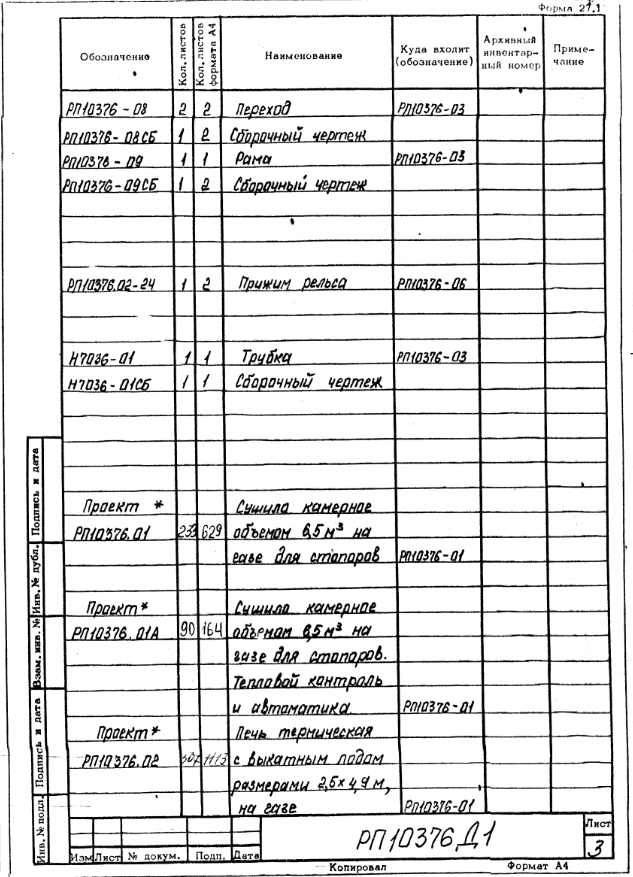 Форма 2г.1
Обозначение Кол. листов Кол. листов формата А4 Наименование Куда входит (обозначение) Архивный инвентар- ный номер Приме- чание
РП10376-08 2 2 Переход РП10376-03
РП10376-08СБ 1 2 Сборочный чертеж
РП10376-09 1 1 Рама РП10376-03
РП10376-09СБ 1 2 Сборочный чертеж
РП10376.02-24 1 2 Прижим рельса РП10376-06
Н7036-01 1 1 Трубка РП10376-03
Н7036-01СБ 1 1 Сборочный чертеж
Проект * Сушила камерное
РП10376.01 233 629 объемом 6,5 м³ на
газе для стопаров РП10376-01
Проект * Сушила камерное
РП10376.01А 90 164 объемом 6,5 м³ на
газе для стопаров.
Тепловой контроль
и автоматика РП10376-01
Проект * Печь термическая
РП10376.02 1113 с выкатным подом
размерами 2,5×4,9 м,
на газе РП10376-01
Подпись и дата
Инв. № дубл.
Взам. инв. №
Подпись и дата
Инв. № подл.
Изм Лист № докум. Подп. Дата
РП10376 Д1
Лист
3
Копировал Формат А4